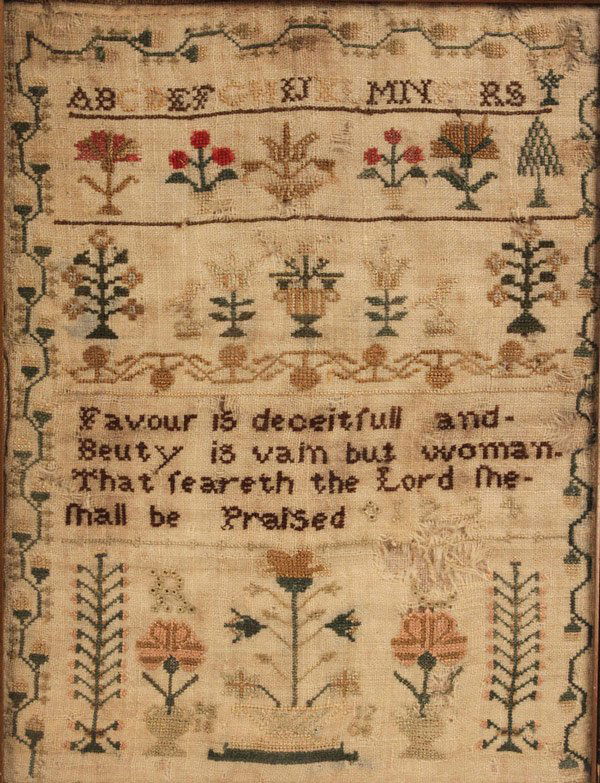 ABCDEFGHIJKLMN RS
Favour is deceitfull and-
Beuty is vain but woman.
That feareth the Lord ſhe-
ſhall be Praiſed